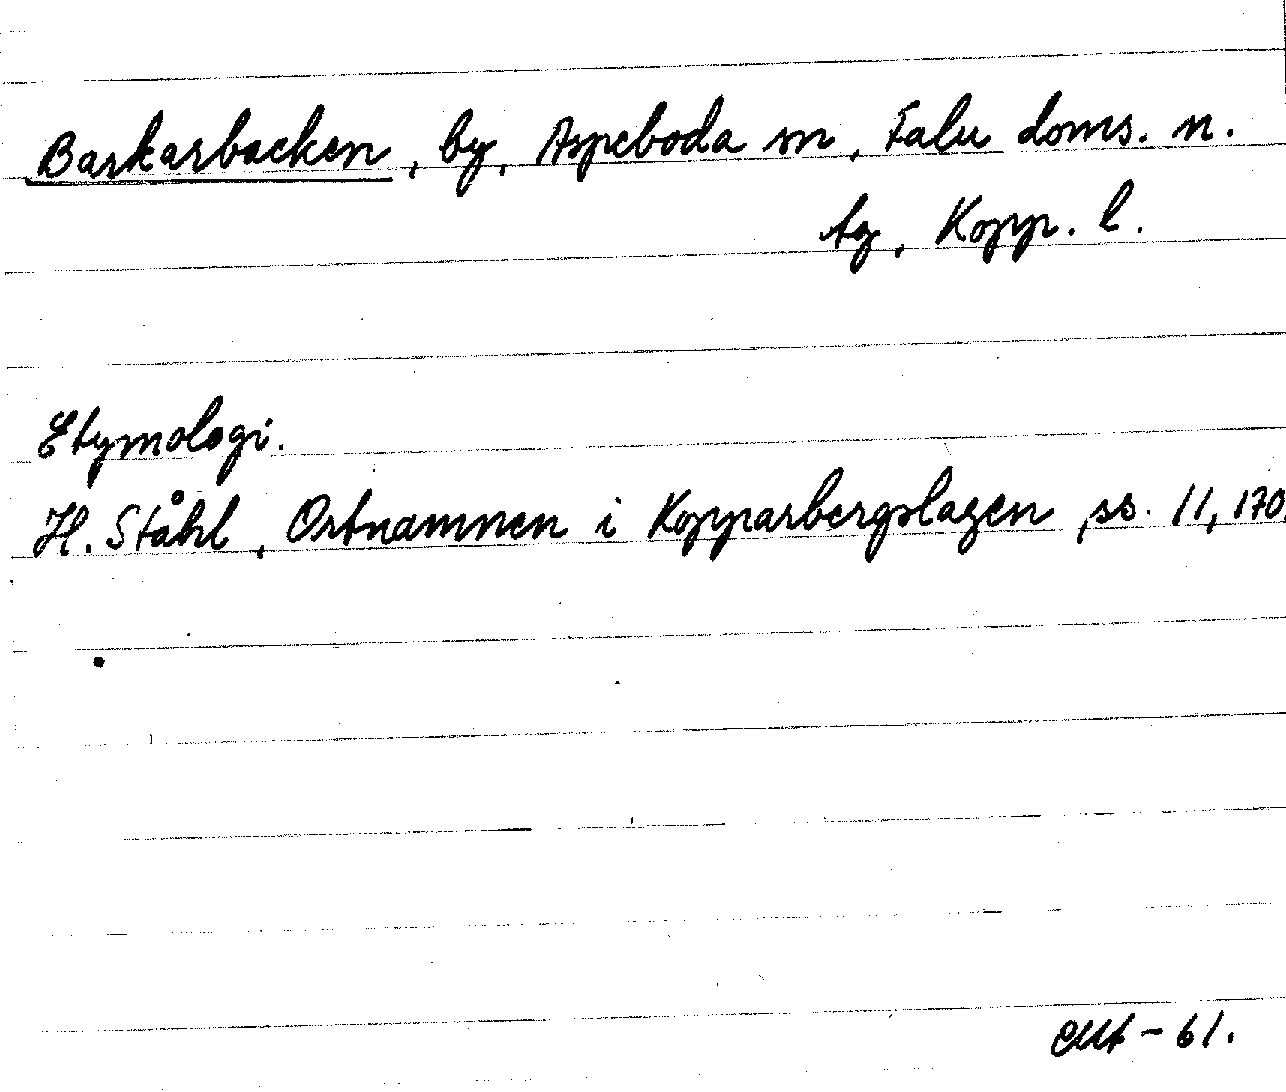 Barkarbacken, by, Aspeboda sn, Falu doms. n.
tg, Kopp. l.
Etymologi.
H. Ståhl, Ortnamnen i Kopparbergslagen, ss. 11, 170.
-61.